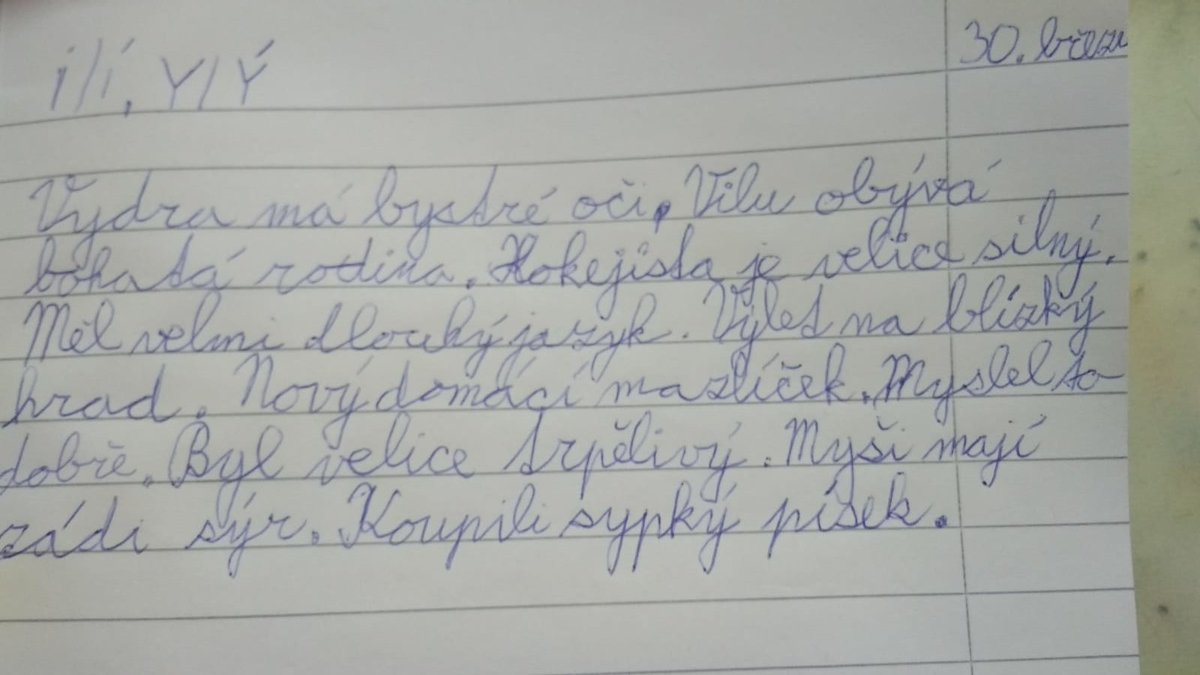 i/í, Y/Ý
30. březn
Vydra má bystré oči. Vilu obývá
bohatá rodina. Hokejista je velice silný.
Měl velmi dlouhý jazyk. Výlet na blízký
hrad. Nový domácí mazlíček. Myslel to
dobře. Byl velice trpělivý. Myši mají
rádi sýr. Koupili sypký písek.